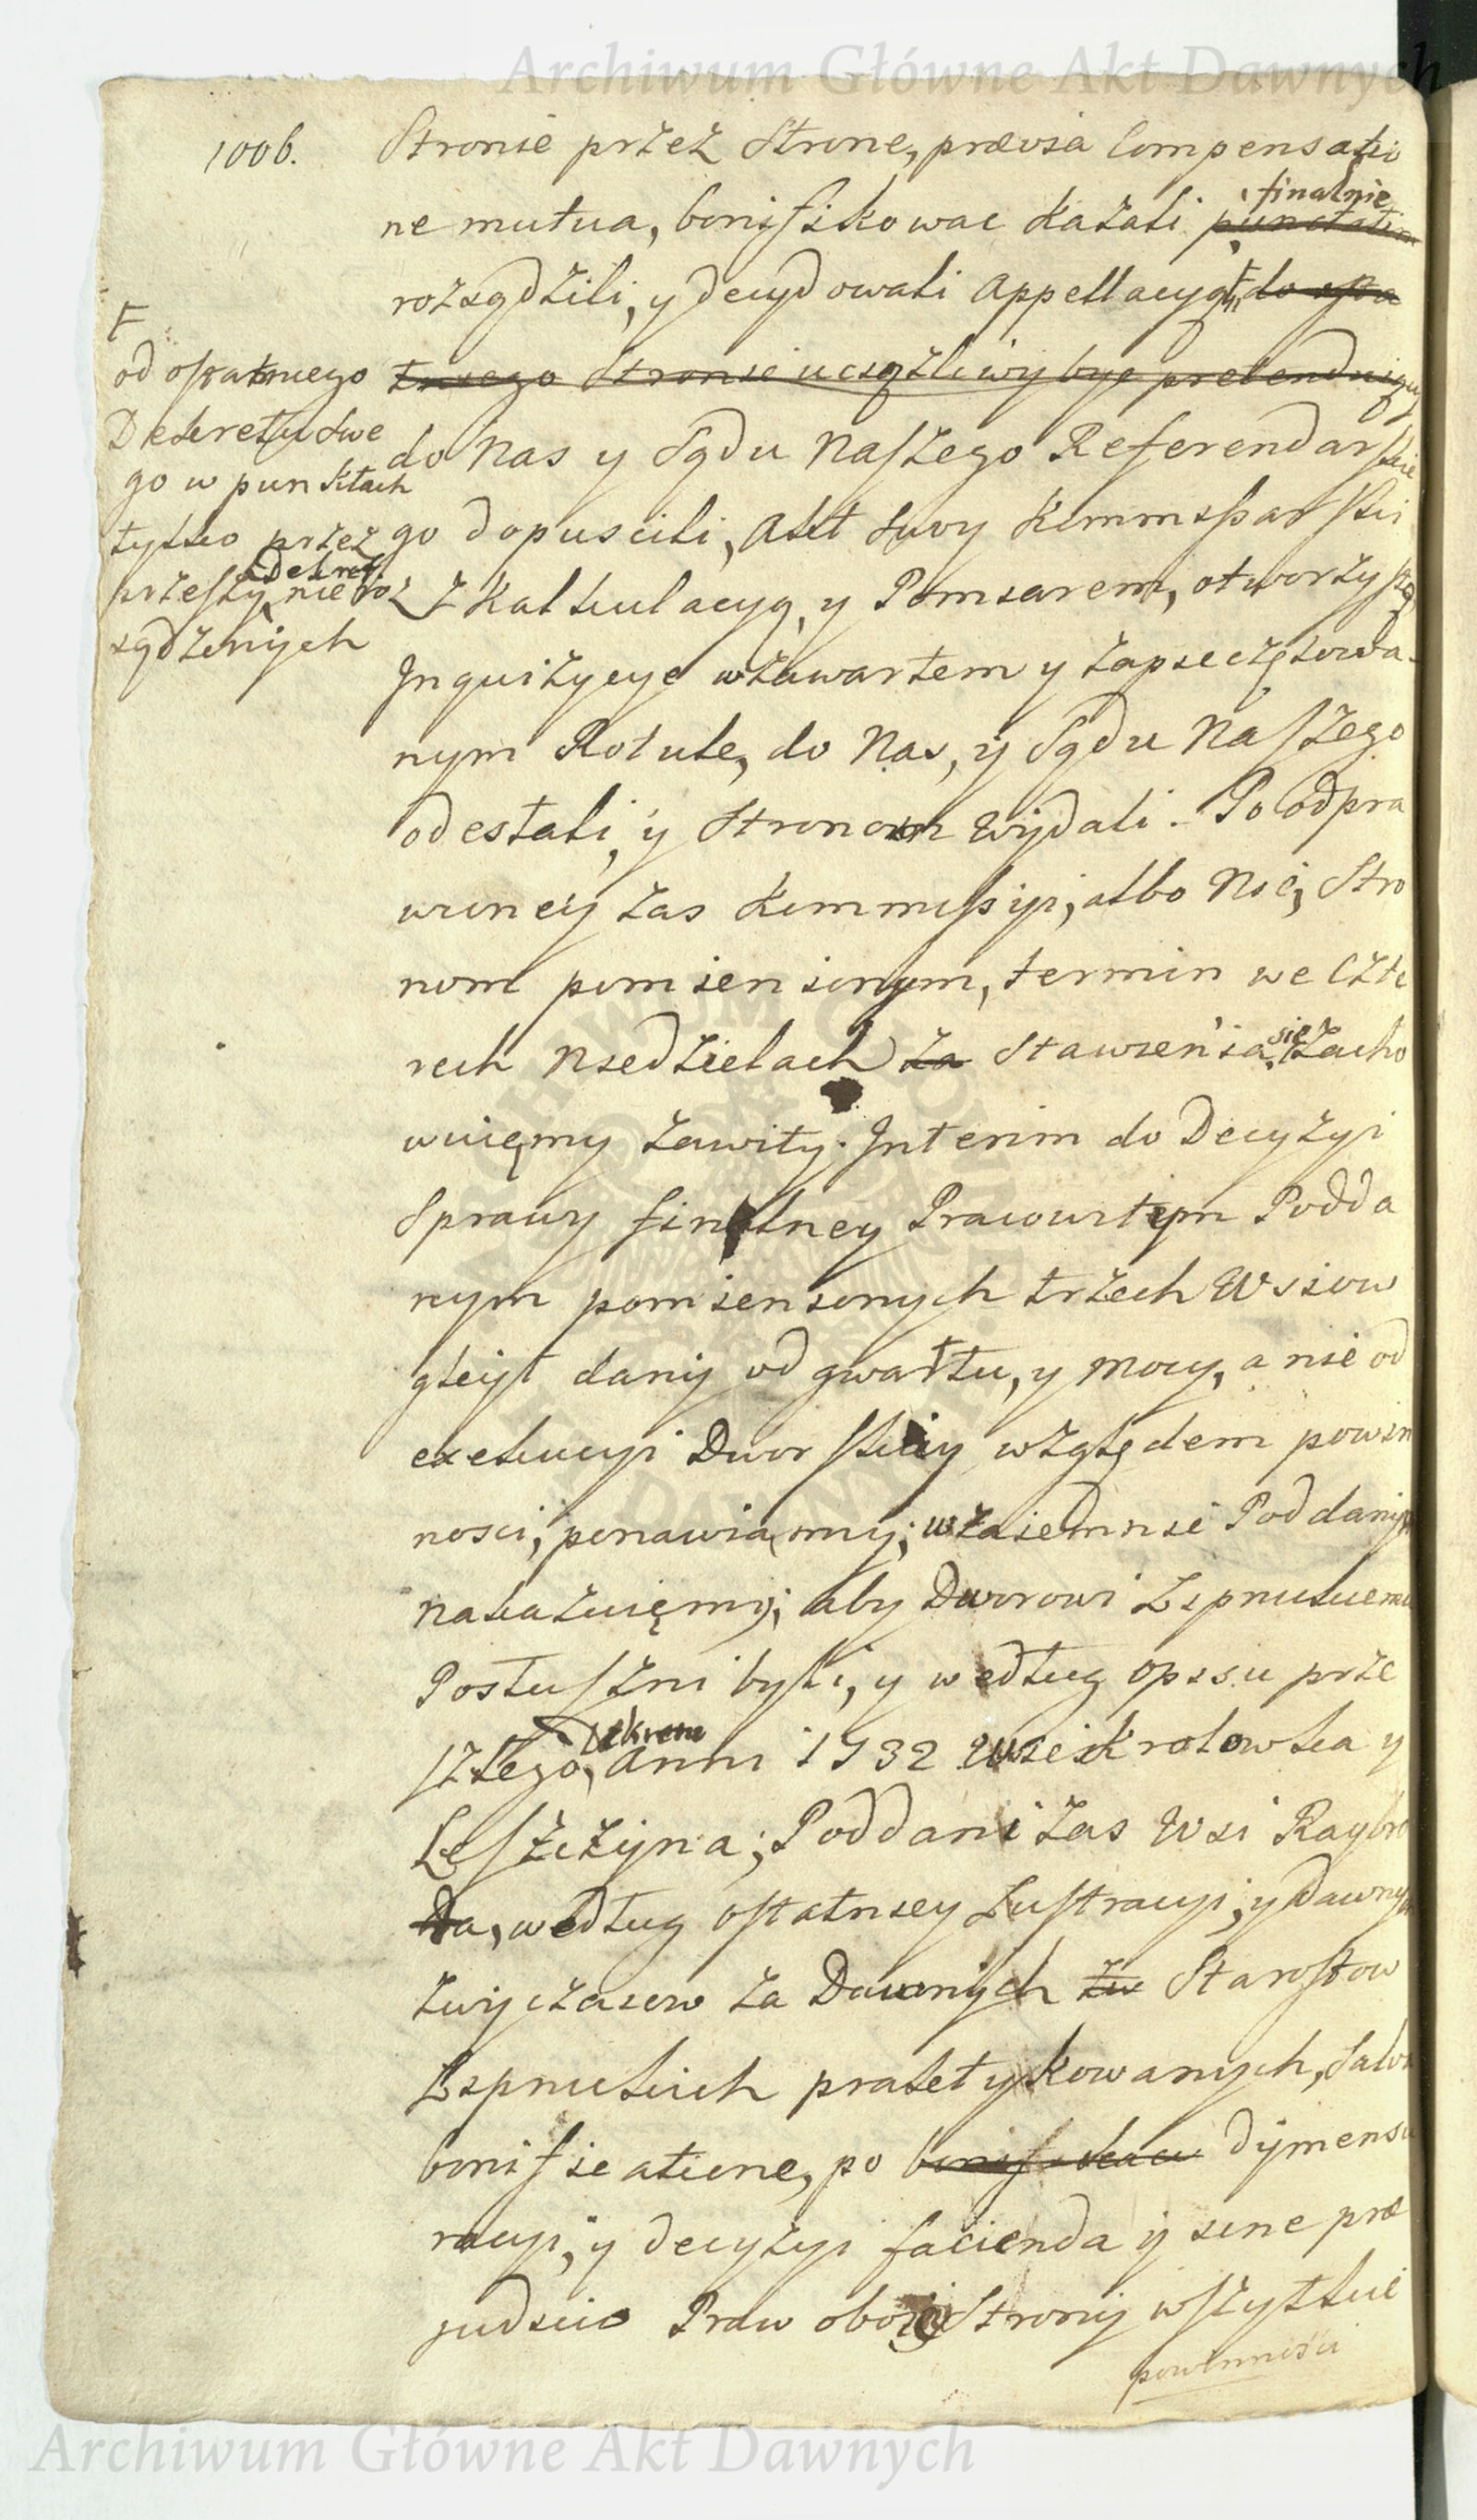 Archiwum Główne Akt Dawnych
1006.
Stronie przez Stronę, prævia Compensatio
ne mutua, bonifikowac kazali finalnie punctatim
rozsądzili, y decydowali Appellacyą do
trzego Stronie uciążliwy bydź pretenduiący
do Nas y Sądu Naszego Referendarskie
go dopuscili, Akt swoy Kommissarski
z Kalkulacyą, y Pomiarem, otworzystą
Inquizycyę w zawartem y zapieczętowa
nym Rotule, do Nas, y Sądu Naszego
odesłali, y Stronom wydali. Po odpra
wioney zas Kommissyi, albo Nie, Stro
nom pomienionym, termin we czte
rech Niedzielach za stawienia się zacho
wuięmy zawity. Interim do Decyzyi
Sprawy finalney Pracowitym Podda
nym pomienionych trzech Wsiow
gleyt dany od gwałtu, y mocy, a nie od
exekucyi Dworskiey względem powin
nosci, ponawiamy; wzaiemnie Poddanym
nakazuięmy; aby Dworowi Lipnickiemu
Posłuszni byli, y według opisu prze
szłego Dekretu Anni 1732 Wsie Krolowka y
Leszczyna; Poddani zas Wsi Raybro
da, według ostatniey Lustracyi, y dawnych
zwyczaiow za Dawnych zw Starostow
Lipnickich praktykowanych, salva
bonificatione, po bonifikacii dymensu
racyi, y decyzyi facienda y sine præ
judicio Praw oboiey Strony wszytkie
powinnosci
F
od ostatniego
Dekretu swe
go w punktach
tylko przez
przeszły Dekret nie roz
sądzonych
Archiwum Główne Akt Dawnych